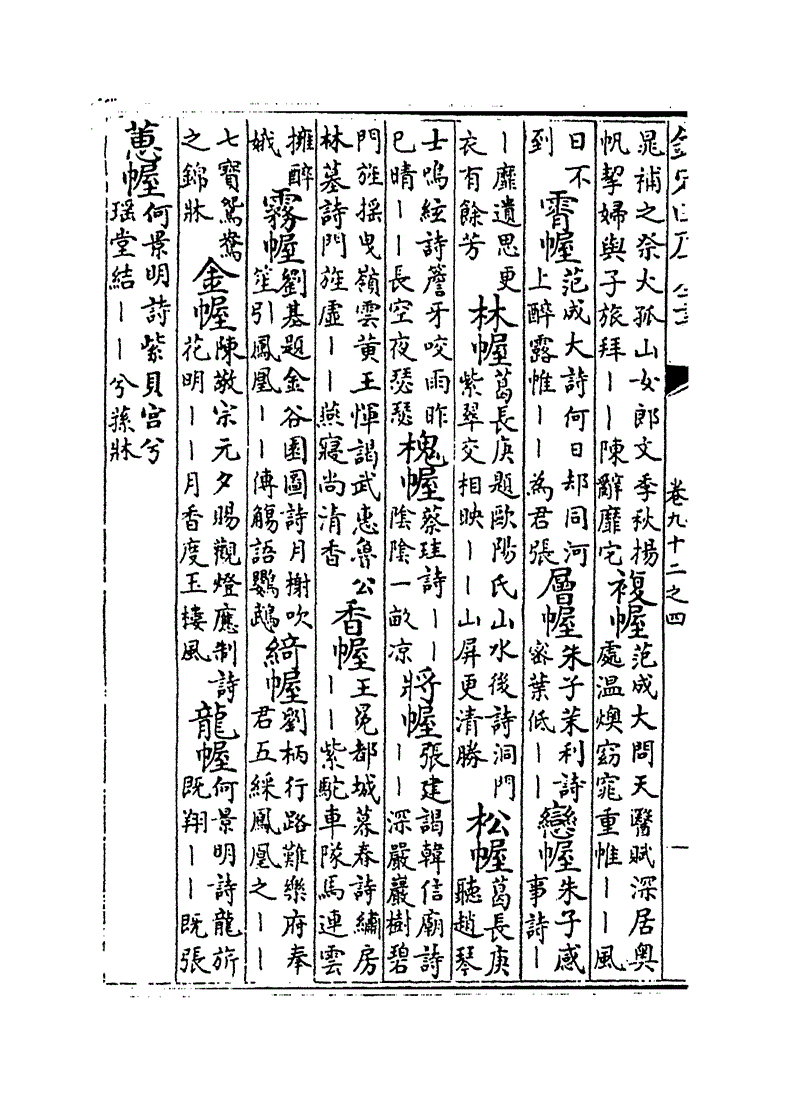 欽定四庫全書
卷九十二之四
晁補之祭大孤山女郎文季秋揚
帆挈婦與子旅拜丨丨陳辭靡宅
複幄
范成大問天醫賦深居奧
處温燠窈窕重帷丨丨風
日不
到
霄幄
范成大詩何日却同河
上醉露帷丨丨為君張
層幄
朱子茉利詩
密葉低丨丨
戀幄
朱子感
事詩丨
丨靡遺思更
衣有餘芳
林幄
葛長庚題歐陽氏山水後詩洞門
紫翠交相映丨丨山屏更清勝
松幄
葛長庚
聽趙琴
士鳴絃詩簷牙咬雨昨
已晴丨丨長空夜瑟瑟
槐幄
蔡珪詩丨丨
陰陰一畝凉
將幄
張建謁韓信廟詩
丨丨深嚴巖樹碧
門旌摇曳嶺雲黄王惲謁武惠魯公
林墓詩門旌虛丨丨燕寢尚清香
香幄
王冕都城暮春詩繡房
丨丨紫駝車隊馬連雲
擁醉
娥
霧幄
劉基題金谷園圖詩月榭吹
笙引鳳凰丨丨傳觴語鸚鵡
綺幄
劉柄行路難樂府奉
君五綵鳳凰之丨丨
七寶鴛鴦
之錦牀
金幄
陳敬宗元夕賜觀燈應制詩
花明丨丨月香度玉樓風
龍幄
何景明詩龍旂
既翔丨丨既張
蕙幄
何景明詩紫貝宫兮
瑶堂結丨丨兮蓀牀